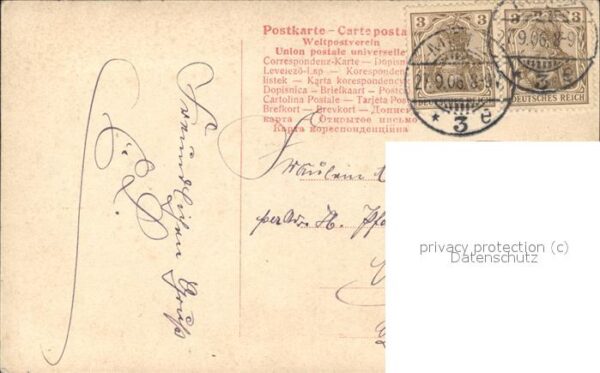 Postkarte – Carte posta
Weltpostverein
Union postale universelle
Correspondenz-Karte – Dopisn
Levelező-Lap – Koresponden
listek – Karta korespondency
Dopisnica – Briefkaart – Postca
Cartolina Postale – Tarjeta Po
Brefkort – Brevkort – Дописн
карта – Открытое письмо
Карта кореспонденційна
3 3
3 3
DEUTSCHES REICH
27.9.06. 8-9
* 3 e
27.9.06. 8-9
3 e
Freundlichen Gruß
Fräulein
per Adr. H.
privacy protection (c)
Datenschutz